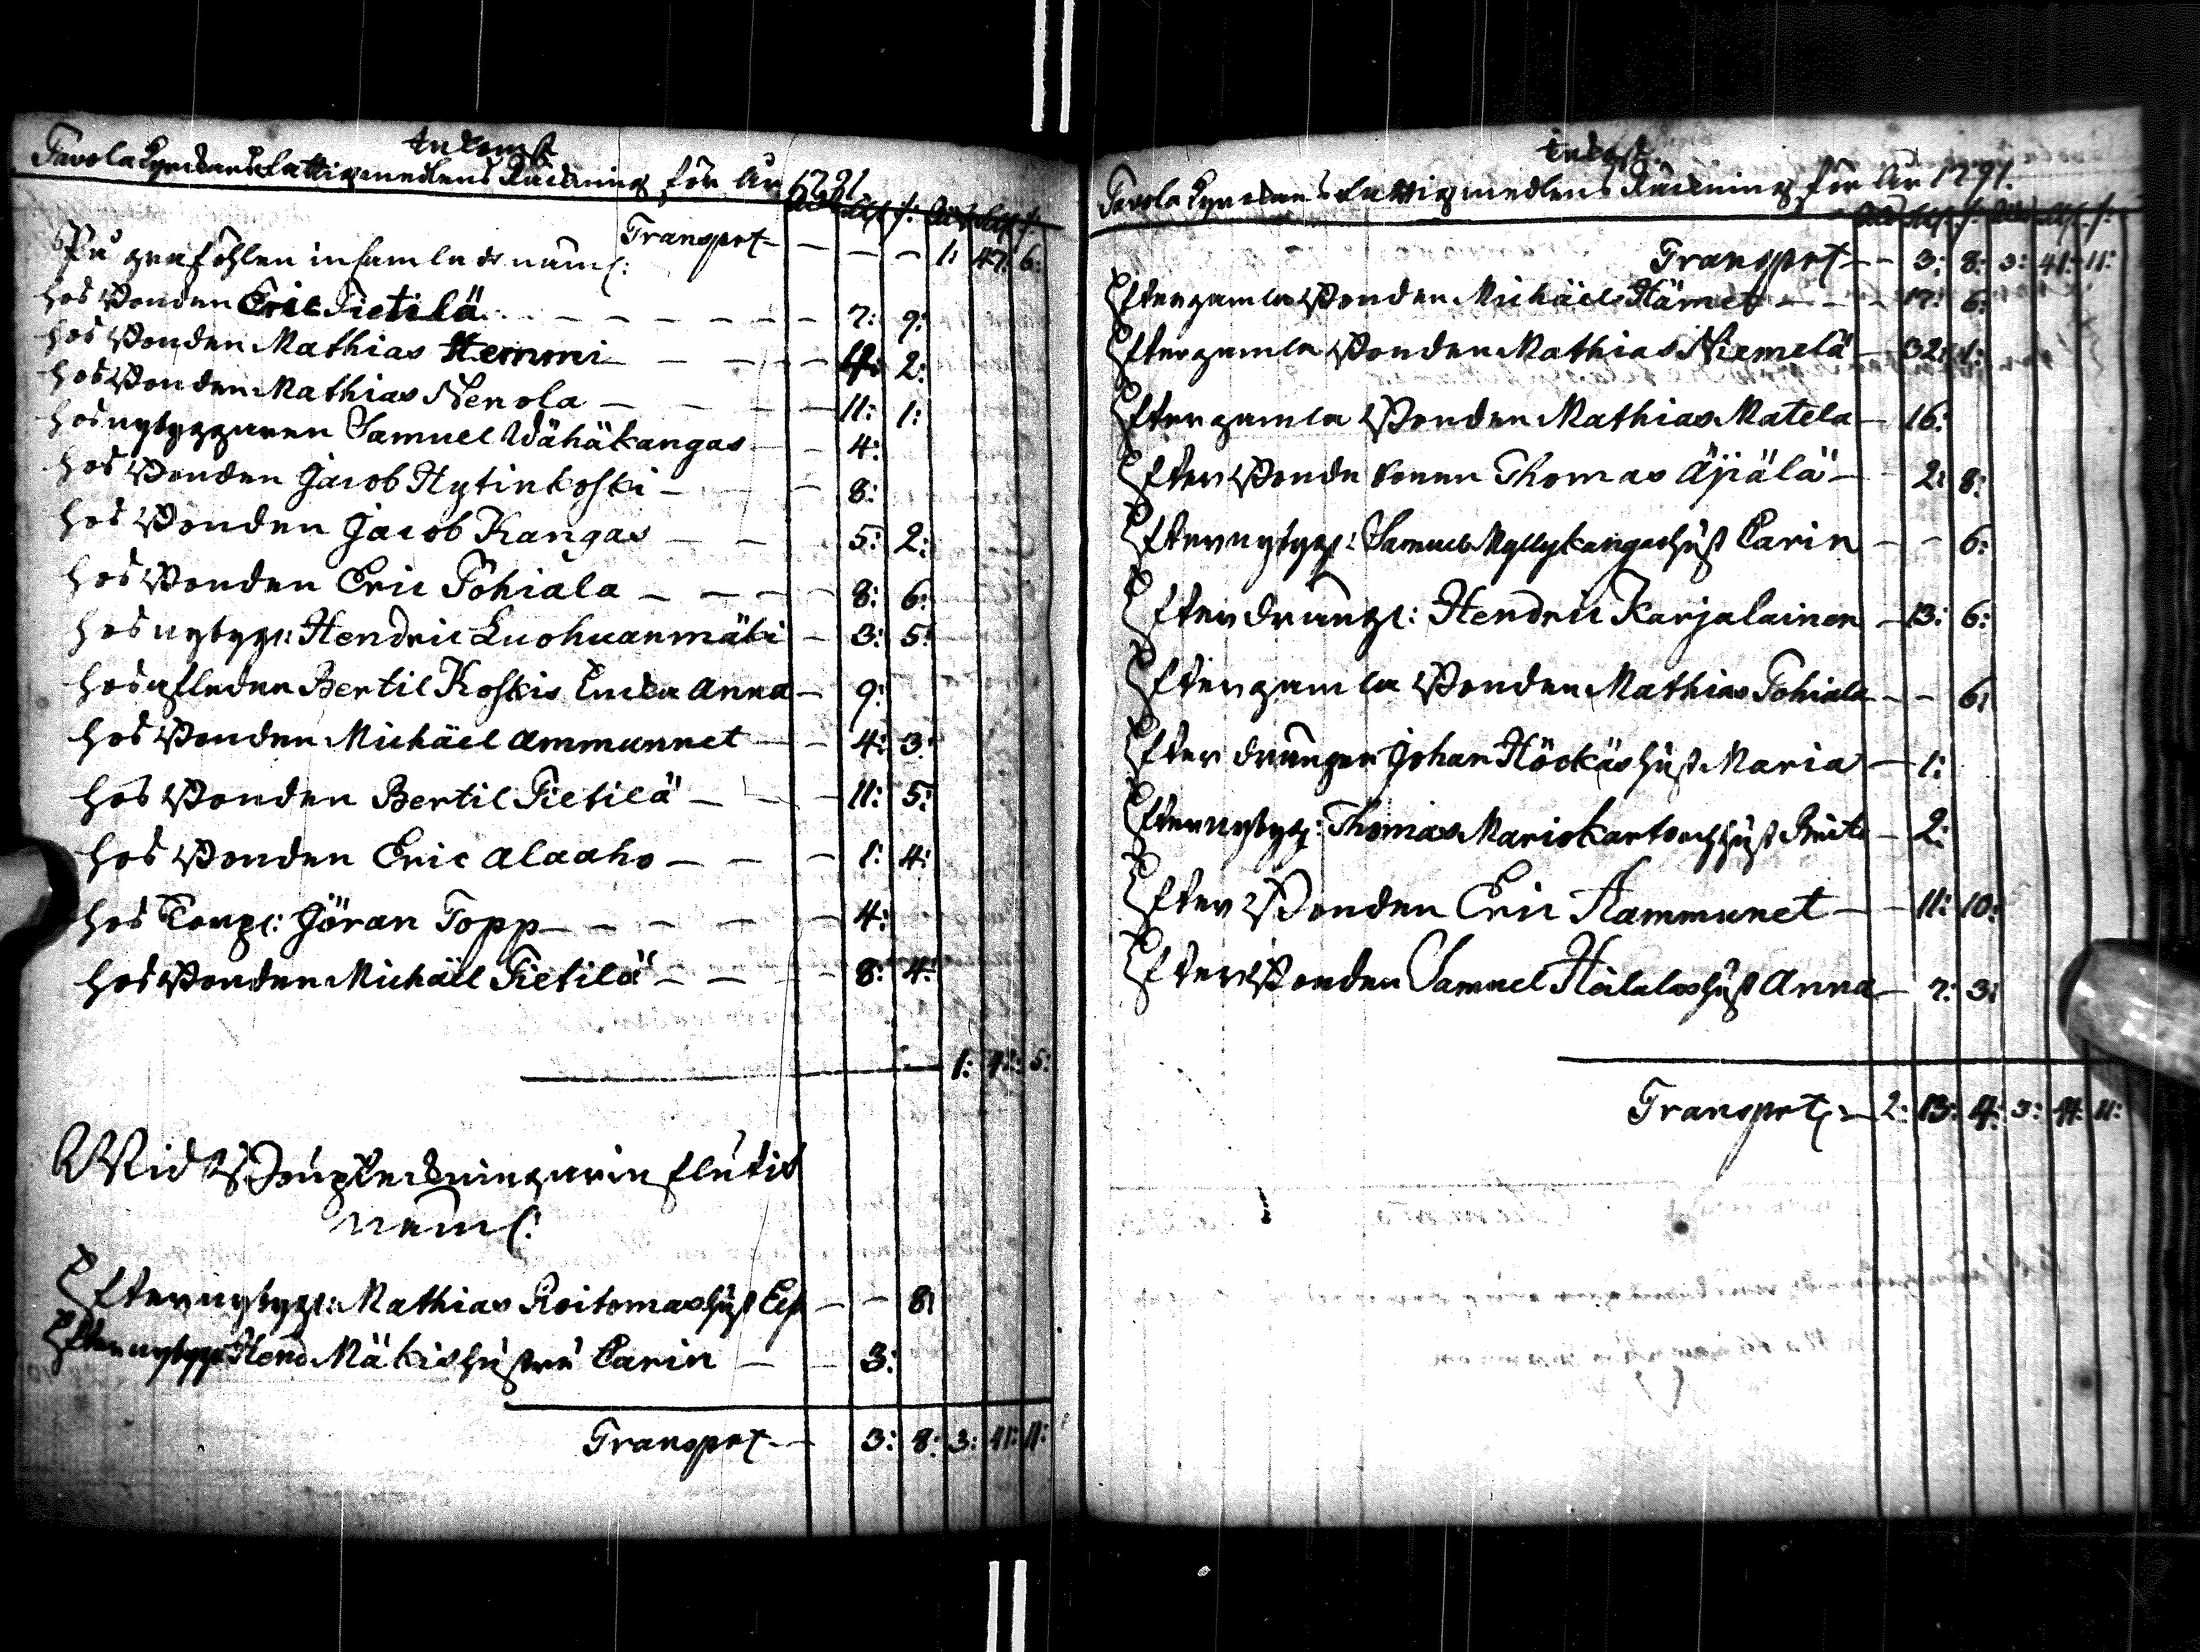 Inkomst
Pavola Kyrckans Fattigmedlens Räckning för År 1791.
Rd Sk f: Rd Sk f:
Transport — — — 1: 47: 6:
På graföhlen insamlade näml:
hos Bonden Eric Pietilä — 7: 9:
hos Bonden Mathias Hemmi — 2:
hos Bonden Mathias Nenola — 11: 1:
hos nybyggaren Samuel Wähäkangas — 4:
hos Bonden Jacob Hytinkoski — 8:
hos Bonden Jacob Kangas — 5: 2:
hos Bonden Eric Pohiala — 8: 6:
hos nybygg: Hendric Luohuanmäki — 3: 5:
hos afledne Bertil Koskis Encka Anna — 9:
hos Bonden Michäel Ammunnet — 4: 3:
hos Bonden Bertil Pietilä — 11: 5:
hos Bonden Eric Alaaho — 1: 4:
hos Jöran Topp — 4:
hos Bonden Michäel Pietilä — 8: 4:
1: 5:
Wid
näml:
Efter nybygg: Mathias Roitomas hust — 8:
Efter nybygg Hend Mäkis hustru Carin — 3:
Transport — 3: 8: 3: 41: 11:
Inkomst
Pavola Kyrckans Fattigmedlens Räckning för År 1791.
Rd Sk f: Rd Sk f:
Transport — 3: 8: 3: 41: 11:
Efter gamla Bonden Michäel Hämet — 17: 6:
Efter gamla Bonden Mathias Niemelä — 32: 1:
Efter gamla Bonden Mathias Matela — 16:
Efter Bonde sonen Thomas Äijälä — 2: 8:
Efter nybygg: Samuel Myllykangas hust Carin — 6:
Efter dräng: Hendric Karjalainen — 13: 6:
Efter gamla Bonden Mathias Pohiala — 6:
Efter drängen Johan Höckäs hust Maria — 1:
Efter nybygg: Thomas hust — 2:
Efter Bonden Eric Hammunet — 11: 10:
Efter Bonden Samuel Heilalas hust Anna — 7: 3:
Transport — 2: 13: 4: 3: 41: 11: